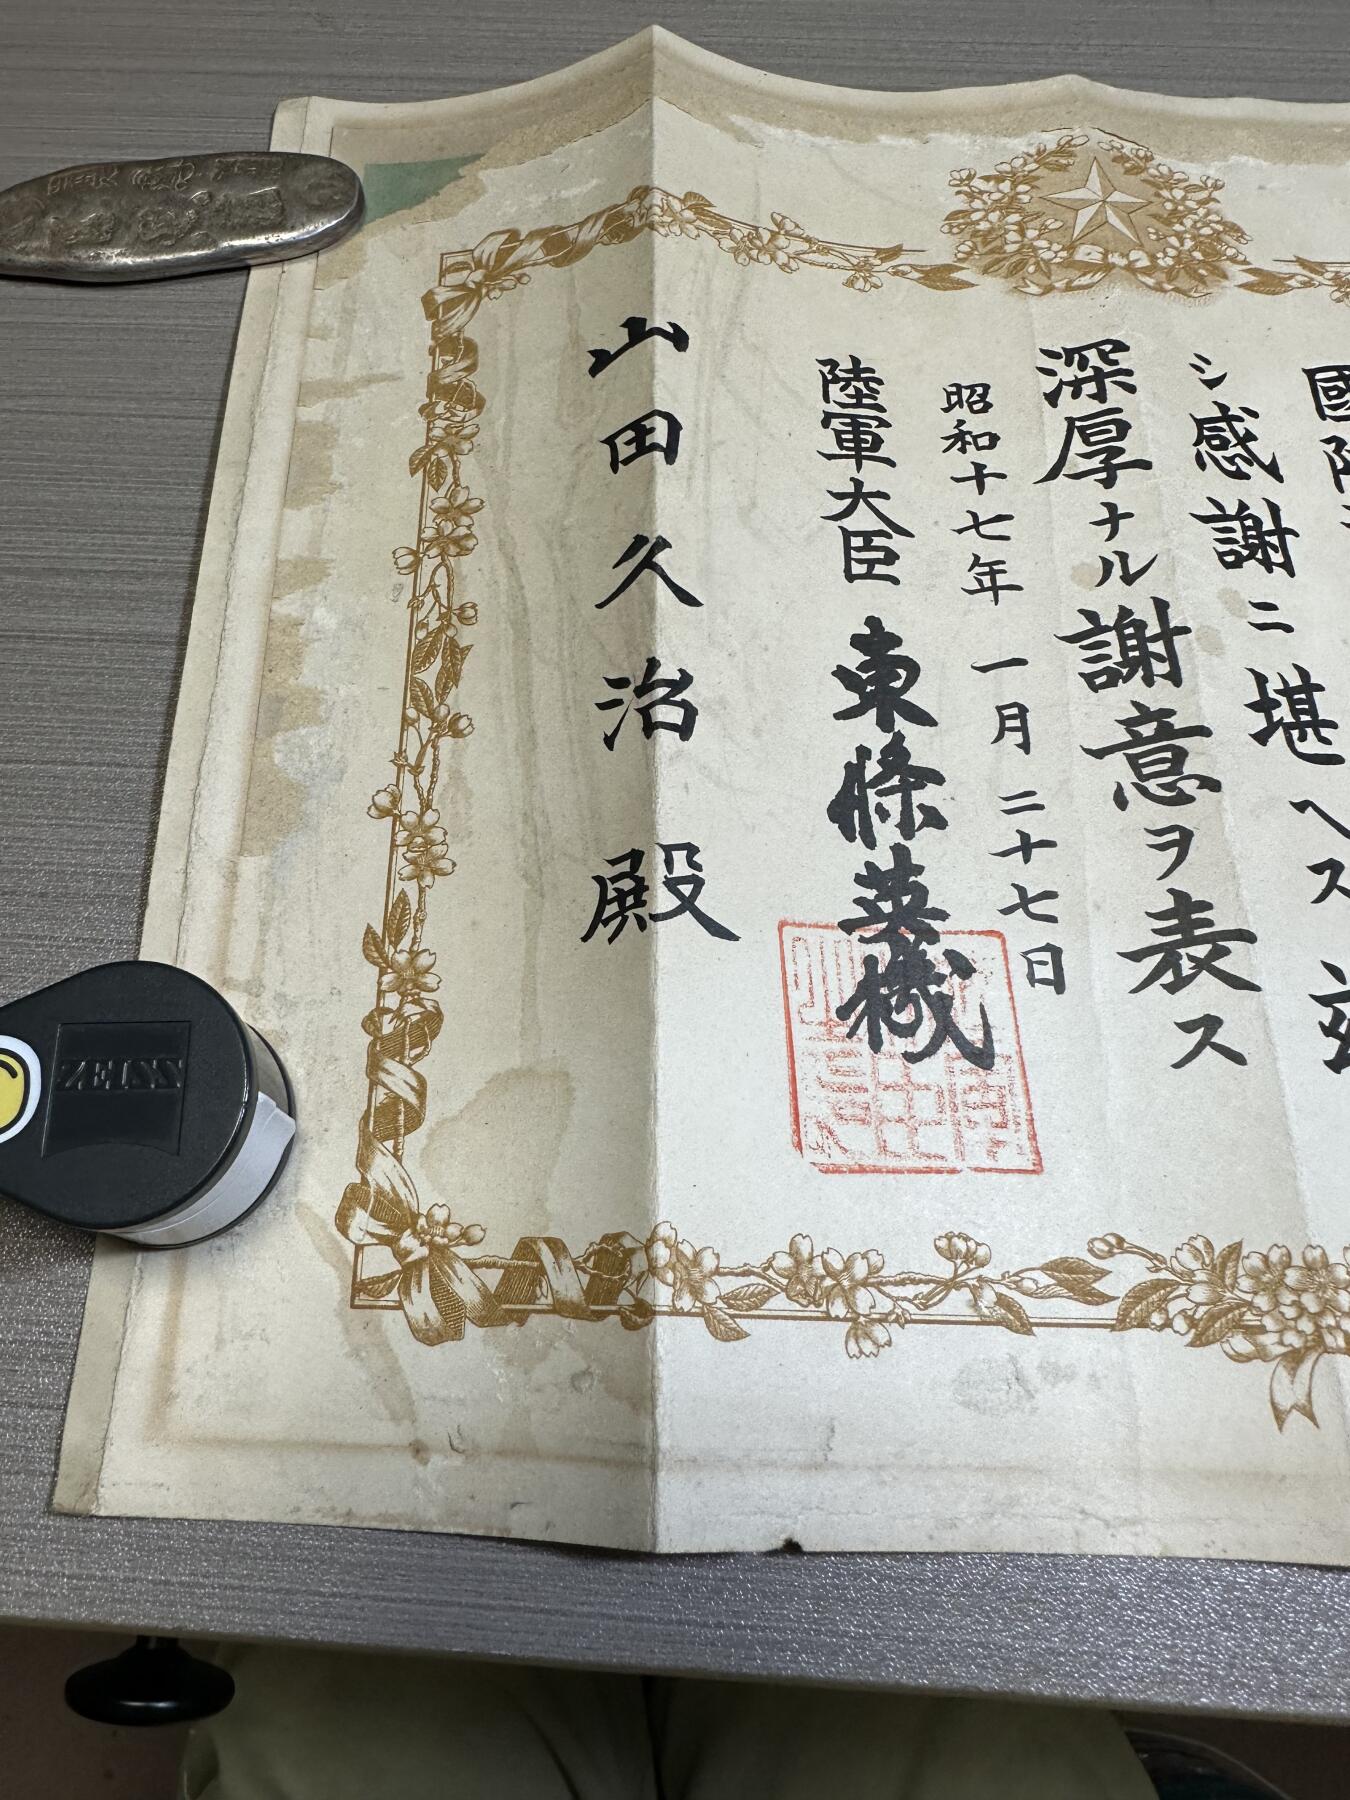 國
シ感謝ニ堪ヘス
深厚ナル謝意ヲ表ス
昭和十七年一月二十七日
陸軍大臣 東條英機
山田久治殿
ZEISS